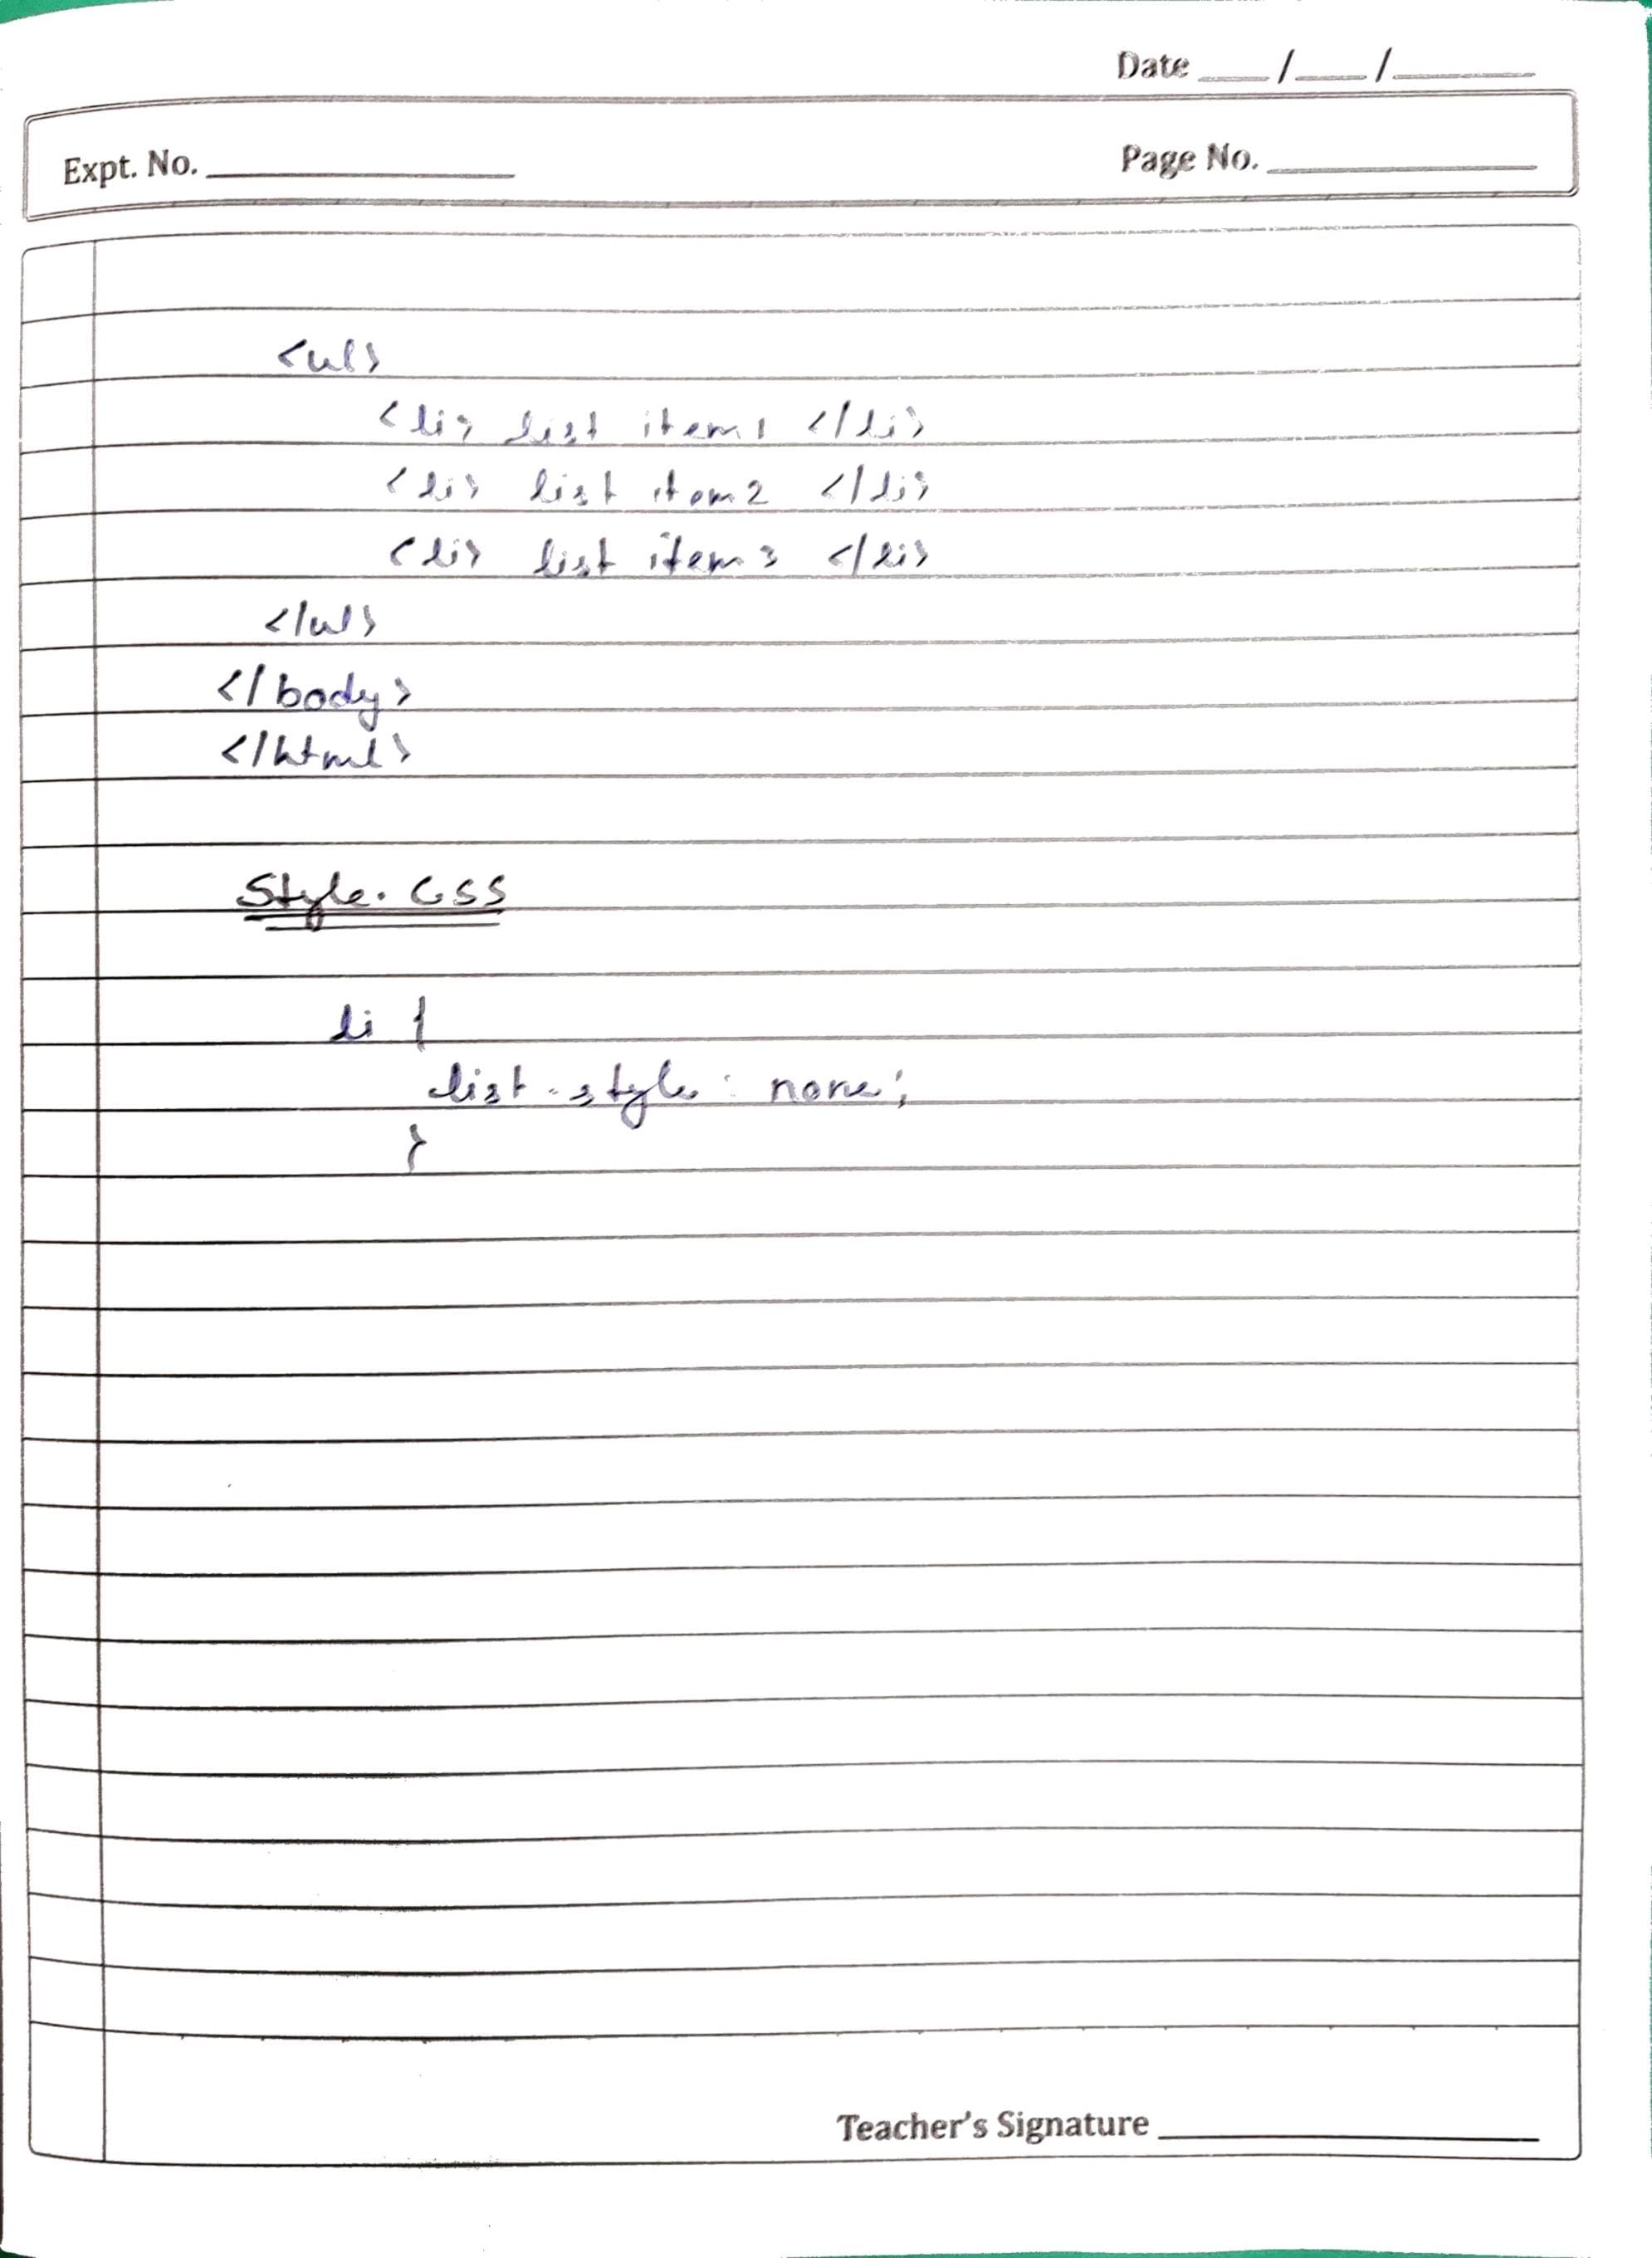 Date ___/___/______
Expt. No. ____________
Page No. ____________
<ul>
<li> list item1 </li>
<li> list item2 </li>
<li> list item3 </li>
</ul>
</body>
</html>
Style.CSS
li {
list-style: none;
}
Teacher's Signature ____________